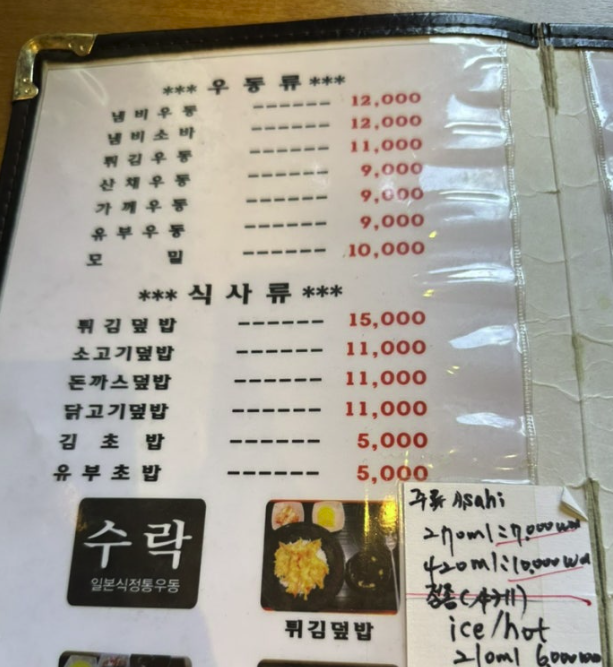 *** 우 동 류 ***
냄 비 우 동 ------ 12,000
냄 비 소 바 ------ 12,000
튀 김 우 동 ------ 11,000
산 채 우 동 ------ 9,000
가 께 우 동 ------ 9,000
유 부 우 동 ------ 9,000
모 밀 ------ 10,000
*** 식 사 류 ***
튀 김 덮 밥 ------ 15,000
소고기덮밥 ------ 11,000
돈까스덮밥 ------ 11,000
닭고기덮밥 ------ 11,000
김 초 밥 ------ 5,000
유 부 초 밥 ------ 5,000
수락
일본식정통우동
튀김덮밥
주류 Asahi
270ml:7,000won
420ml:10,000won
정종(사케)
ice/hot
210ml 6000won